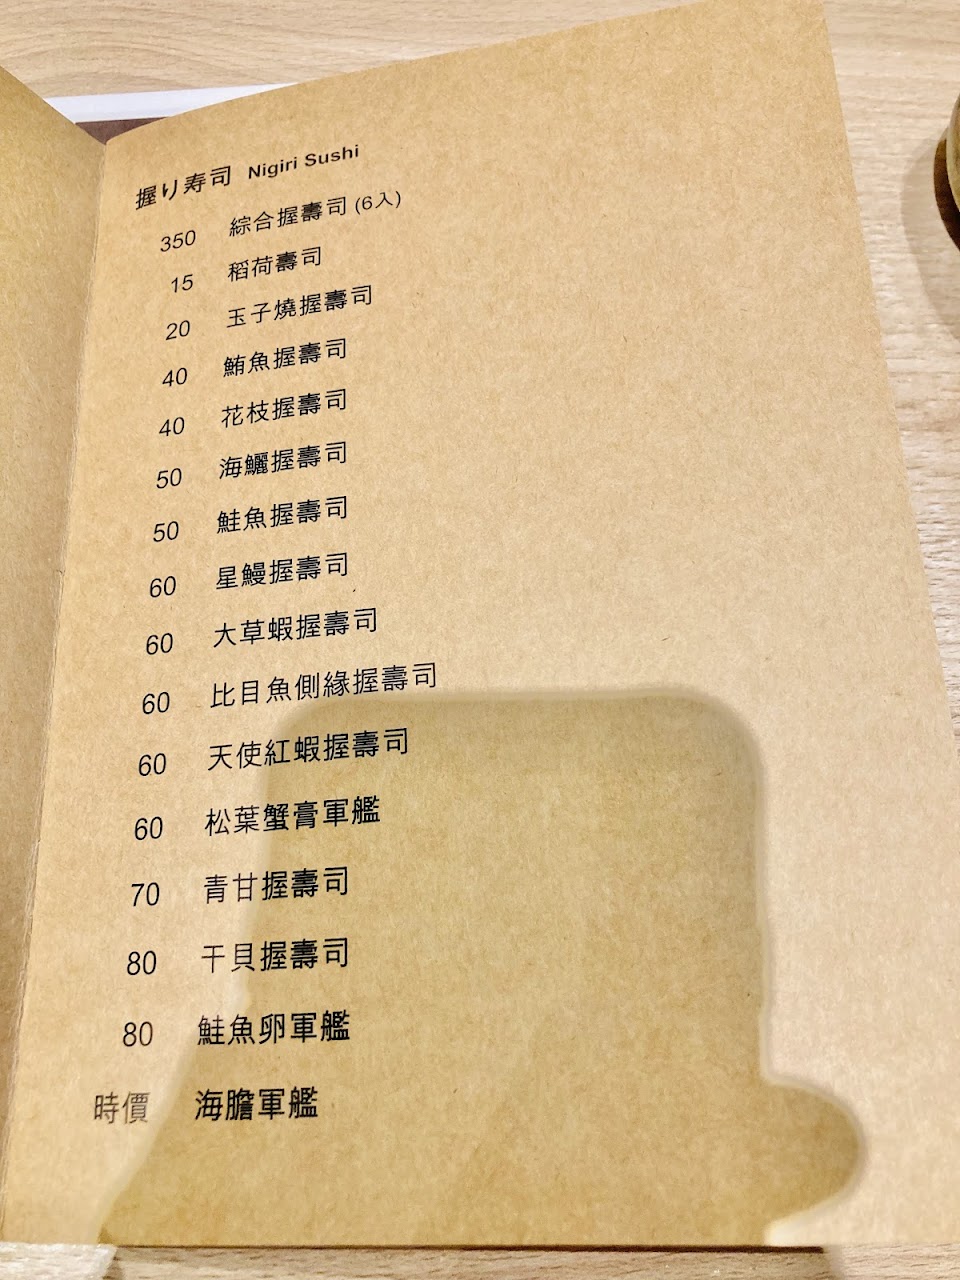 握り寿司 Nigiri Sushi
350 綜合握壽司 (6入)
15 稻荷壽司
20 玉子燒握壽司
40 鮪魚握壽司
40 花枝握壽司
50 海鱺握壽司
50 鮭魚握壽司
60 星鰻握壽司
60 大草蝦握壽司
60 比目魚側緣握壽司
60 天使紅蝦握壽司
60 松葉蟹膏軍艦
70 青甘握壽司
80 干貝握壽司
80 鮭魚卵軍艦
時價 海膽軍艦